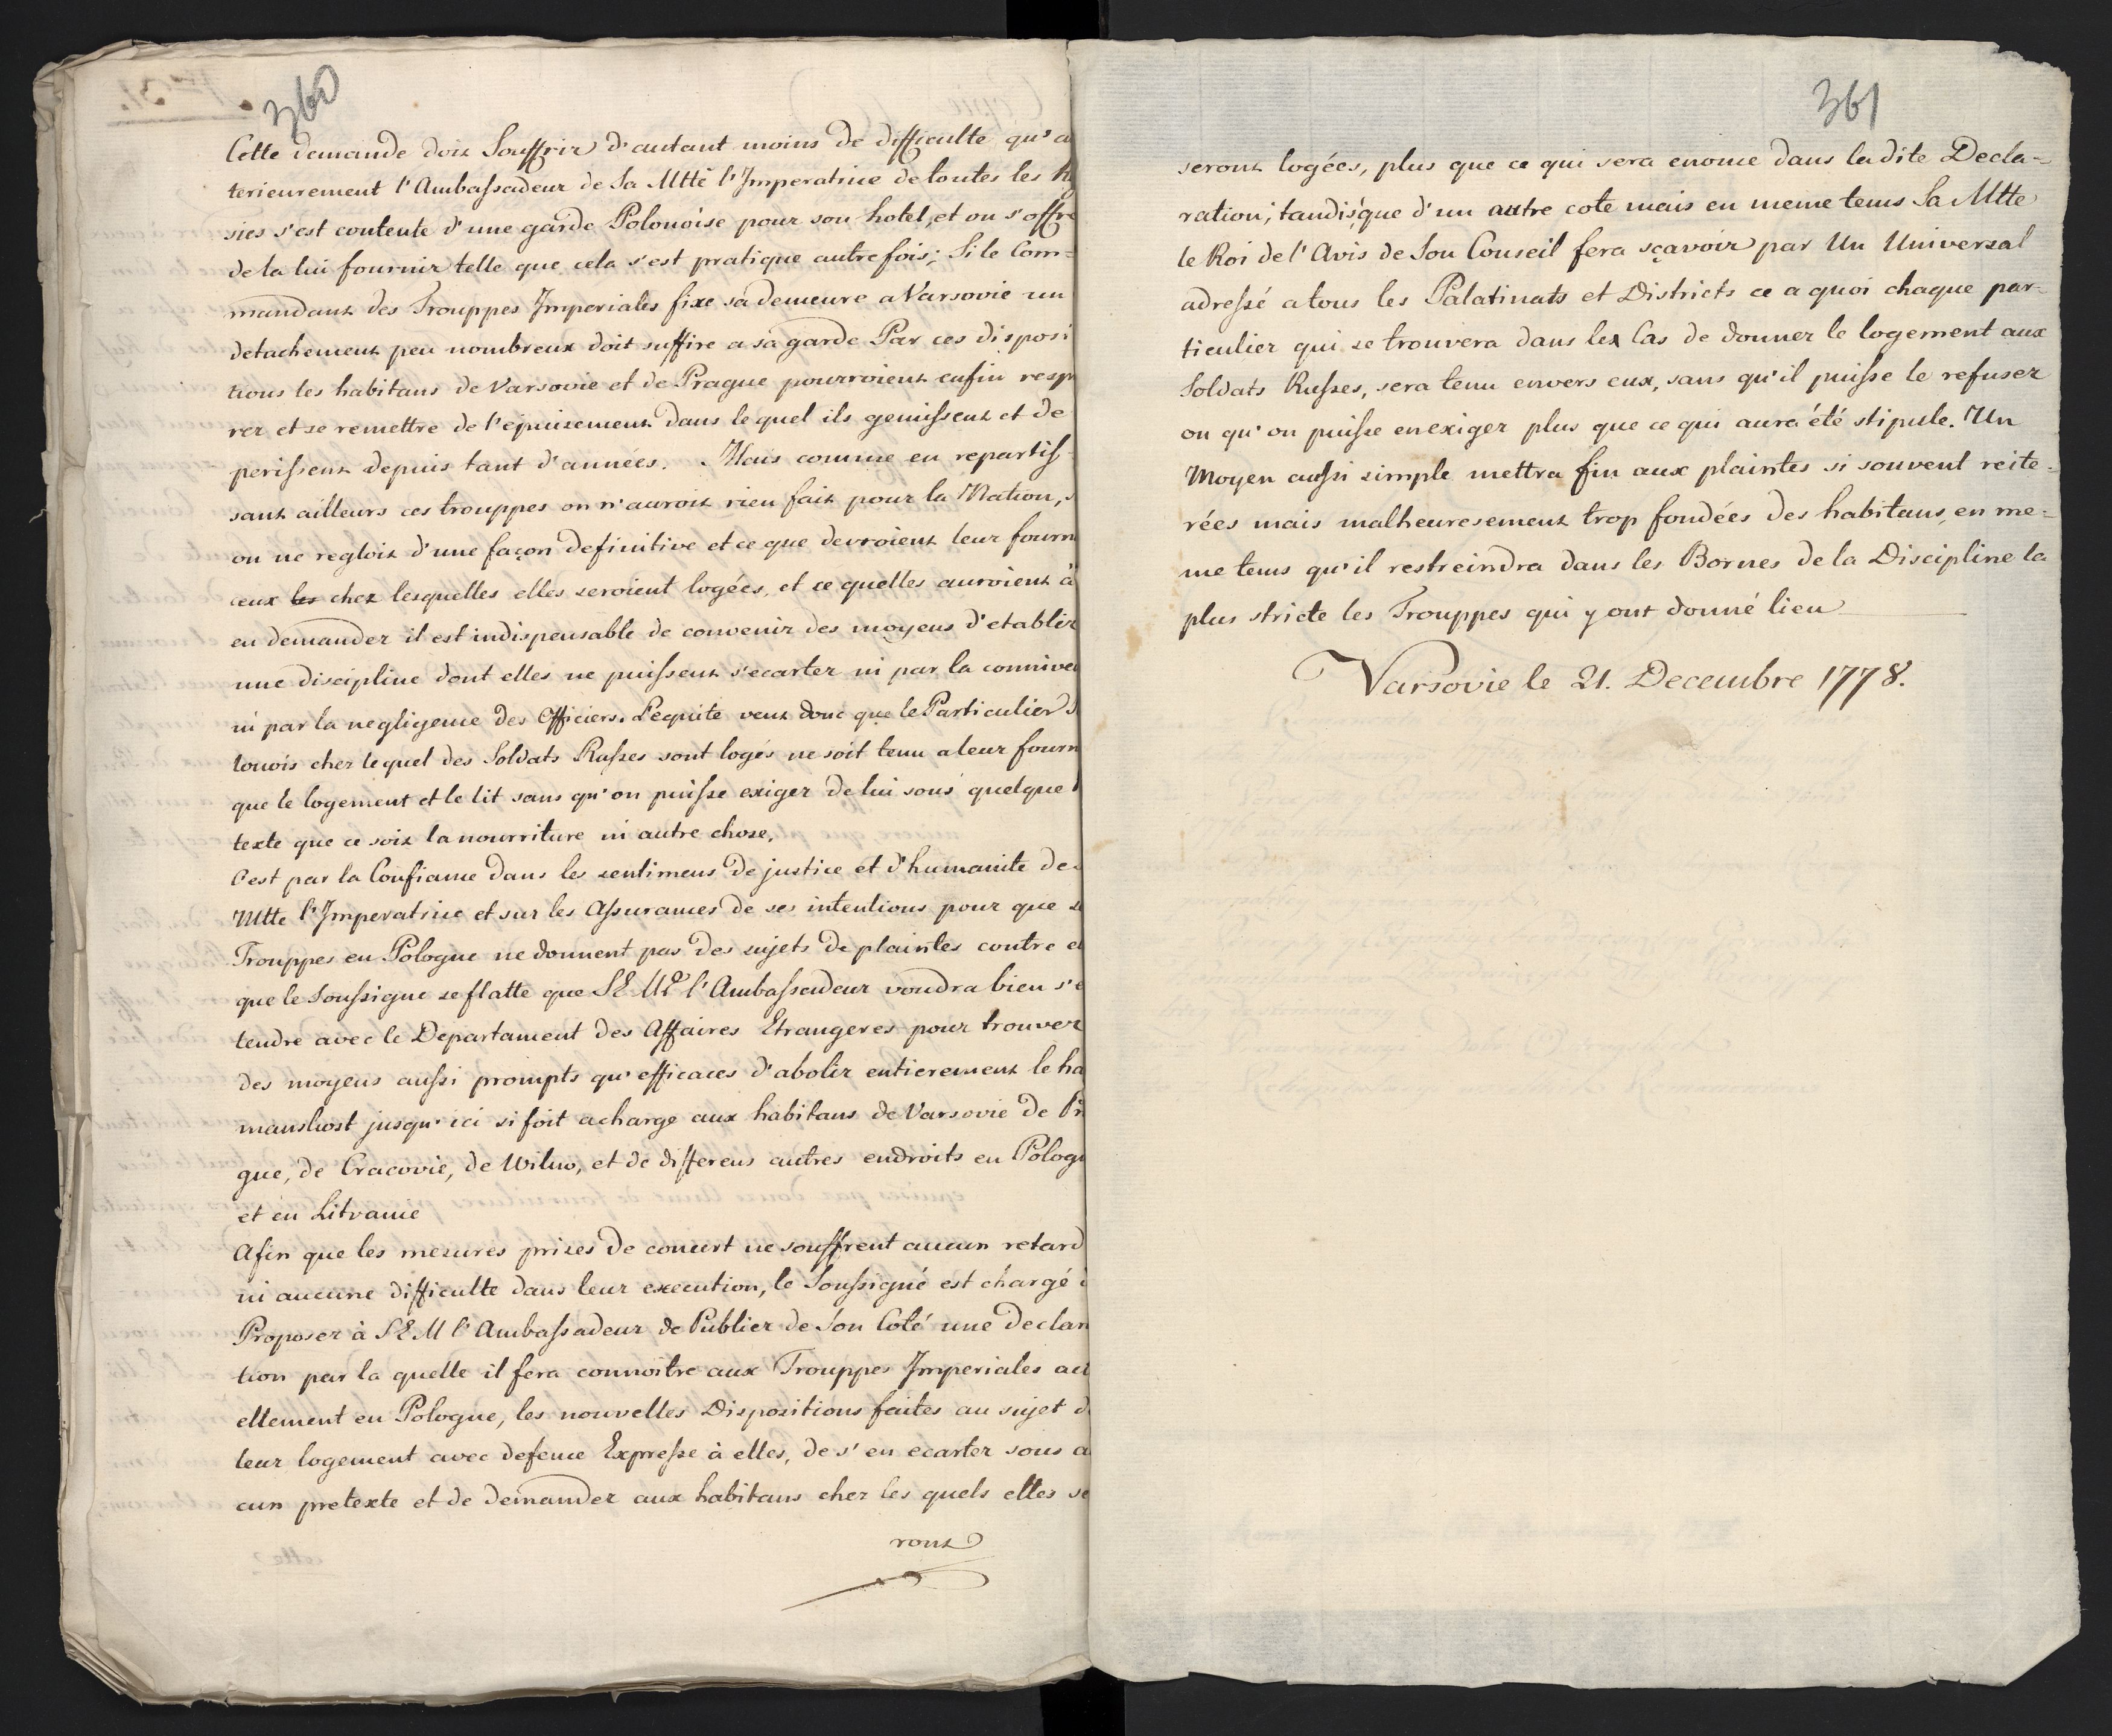 360
Cette demande doit Souffrir d'autant moins de difficulte qu'a
terieurement l'Ambassadeur de Sa Mtté l'Imperatrice de toutes les Ru
sies s'est contente d'une garde Polonoise pour son hotel, et on s'offre
de la lui fournir telle que cela s'est pratique autrefois; Si le Com=
mandant des Trouppes Imperiales fixe sa demeure a Varsovie un
detachement peu nombreux doit suffire a sa garde Par ces disposi
tions les habitans de Varsovie et de Prague pourroient enfin respi
rer et se remettre de l'epuisement dans le quel ils gemissent et de
perissent depuis tant d'années. Mais comme en repartis-
sant ailleurs ces trouppes on n'auroit rien fait pour la Nation, s
on ne regloit d'une façon definitive et ce que devroient leur fourn
ceux les chez lesquelles elles seroient logées, et ce quelles auroient à
en demander il est indispensable de convenir des moyens d'etablir
une discipline dont elles ne puissent s'ecarter ni par la connive
ni par la negligence des Officiers. L'equite veut donc que le Particulier
lonois cher le quel des Soldats Russes sont logés ne soit tenu a leur fourn
que le logement et le lit sans qu'on puisse exiger de lui sous quelque
texte que ce soit la nourriture ni autre chose.
C'est par la Confiance dans les sentimens de justice et d'humanite de
Mtte l'Imperatrice et sur les Assurances de ses intentions pour que se
Trouppes en Pologne ne donnent pas des sujets de plaintes contre el
que le Soussigne se flatte que S E Mr l'Ambassadeur voudra bien s'e
tendre avec le Departament des Affaires Etrangeres pour trouver
des moyens aussi prompts qu'efficaces d'abolir entierement le ha
manskost jusqu'ici si foit a charge aux habitans de Varsovie de Pr
gue, de Cracovie, de Wilno, et de differens autres endroits en Polog
et en Litvanie
Afin que les mesures prises de concert ne souffrent aucun retard
ni aucune difficulte dans leur execution, le Soussigné est chargé
Proposer à S E M l'Ambassadeur de Publier de Son Coté une Declara
tion par la quelle il fera connoitre aux Trouppes Imperiales act
ellement en Pologne, les nouvelles Dispositions faites au sujet d
leur logement avec defence Expresse à elles, de s'en ecarter sous a
cun pretexte et de demander aux habitans cher les quels elles se
ront
361
seront logées, plus que ce qui sera enonce dans la dite Decla=
ration; tandisque d'un autre cote mais en meme tems Sa Mtte
le Roi de l'Avis de Son Conseil fera sçavoir par Un Universal
adressé a tous les Palatinats et Districts ce a quoi chaque par=
ticulier qui se trouvera dans les Cas de donner le logement aux
Soldats Russes, sera tenu envers eux, sans qu'il puisse le refuser
ou qu'on puisse en exiger plus que ce qui aura été stipule. Un
Moyen aussi simple mettra fin aux plaintes si souvent reite=
rées mais malheuresement trop fondées des habitans, en me=
me tems qu'il restreindra dans les Bornes de la Discipline la
plus stricte les Trouppes qui y ont donné lieu
Varsovie le 21. Decembre 1778.